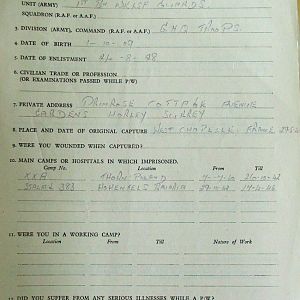 UNIT (ARMY), 1ST BN WELSH GUARDS.
SQUADRON (R.A.F. or A.A.F.)
3. DIVISION (ARMY), COMMAND (R.A.F. or A.A.F.) GHQ TROOPS.
4. DATE OF BIRTH 1-10-09
5. DATE OF ENLISTMENT
6. CIVILIAN TRADE OR PROFESSION
(OR EXAMINATIONS PASSED WHILE P/W)
7. PRIVATE ADDRESS PRIMROSE COTTAGE AVENUE
GARDENS HORLEY SURREY
8. PLACE AND DATE OF ORIGINAL CAPTURE WEST FRANCE
9. WERE YOU WOUNDED WHEN CAPTURED?
10. MAIN CAMPS OR HOSPITALS IN WHICH IMPRISONED.
Camp No. Location From Till
XXA THORN POLAND 7-7-40
STALAG 383 HOHENFELS BAVARIA 17-4-45
11. WERE YOU IN A WORKING CAMP?
Location From Till Nature of Work
12. DID YOU SUFFER FROM ANY SERIOUS ILLNESSES WHILE A P/W?